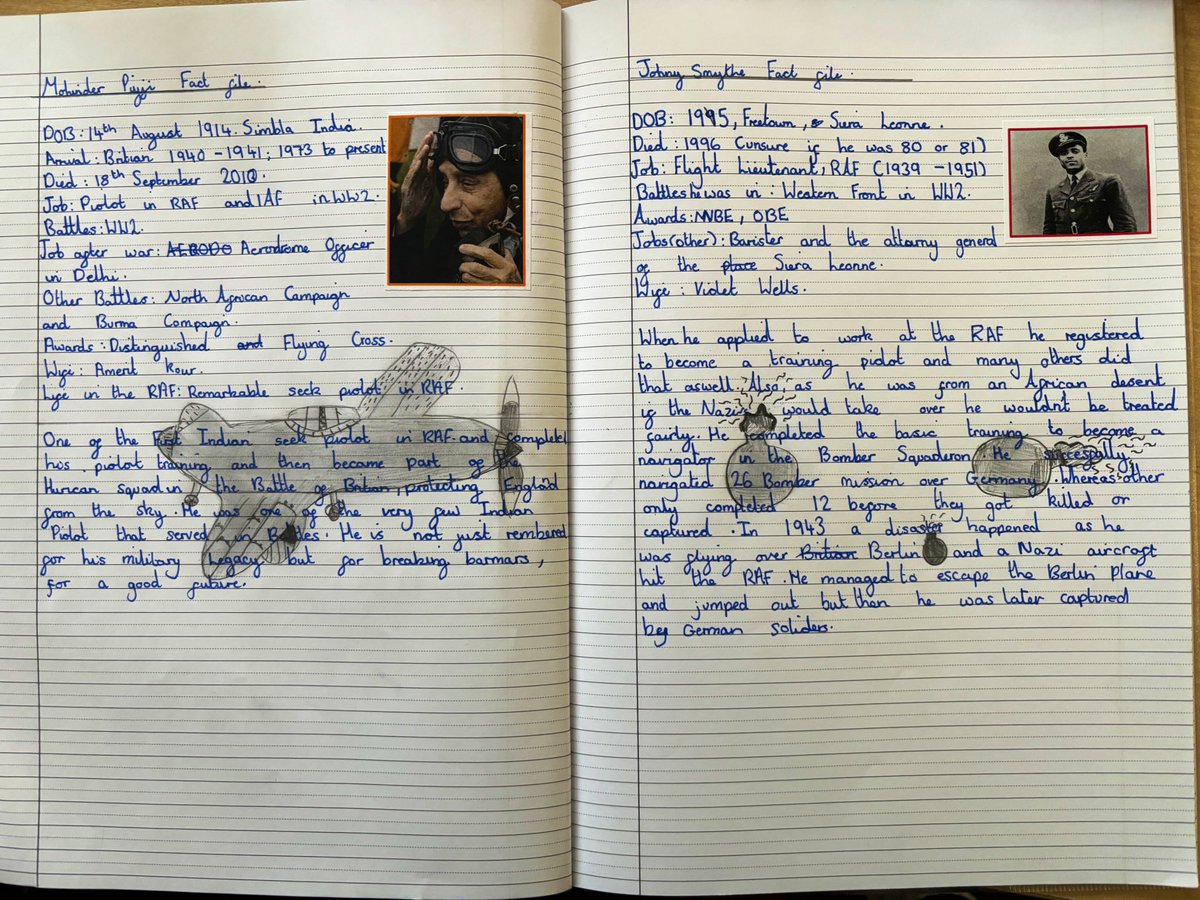 Mohinder Pujji Fact file.
DOB: 14th August 1914. Simbla India.
Arrival: Britian 1940 - 1941; 1973 to present
Died: 18th September 2010.
Job: Piolot in RAF and IAF in WW2.
Battles: WW2.
Job after war: AERODO Aerodrome Officer
in Delhi.
Other Battles: North African Campaign
and Burma Campaign.
Awards: Distinguished and Flying Cross.
Wife: Ament Kour.
Life in the RAF: Remarkable seek piolot in RAF.
One of the First Indian seek piolot in RAF and completed
his piolot training and then became part of the
Hurican squadrin the Battle of Britian, protecting England
from the sky. He was one of the very few Indian
Pilot that served in Battles. He is not just rembered
for his military Legacy but for breaking barmars,
for a good future.
Johny Smythe Fact file.
DOB: 1995, Freetown, Siera Leonne.
Died: 1996 (unsure if he was 80 or 81)
Job: Flight Lieutenant, RAF (1939 - 1951)
Battles hi was in: Western Front in WW2.
Awards: MBE, OBE
Jobs (other): Barister and the attorny general
of the place Siera Leonne.
Wife: Violet Wells.
When he applied to work at the RAF he registered
to become a training piolot and many others did
that aswell. Also, as he was from an African desent
if the Nazis would take over he wouldn't be treated
fairly. He completed the basic training to become a
navigator in the Bomber Squaderon. He succesfully
navigated 26 Bomber mission over Germany. Whereas other
only completed 12 before they got killed or
captured. In 1943 a disaster happened as he
was flying over Britian Berlin and a Nazi aircraft
hit the RAF. He managed to escape the Berlin Plane
and jumped out but then he was later captured
by German soliders.